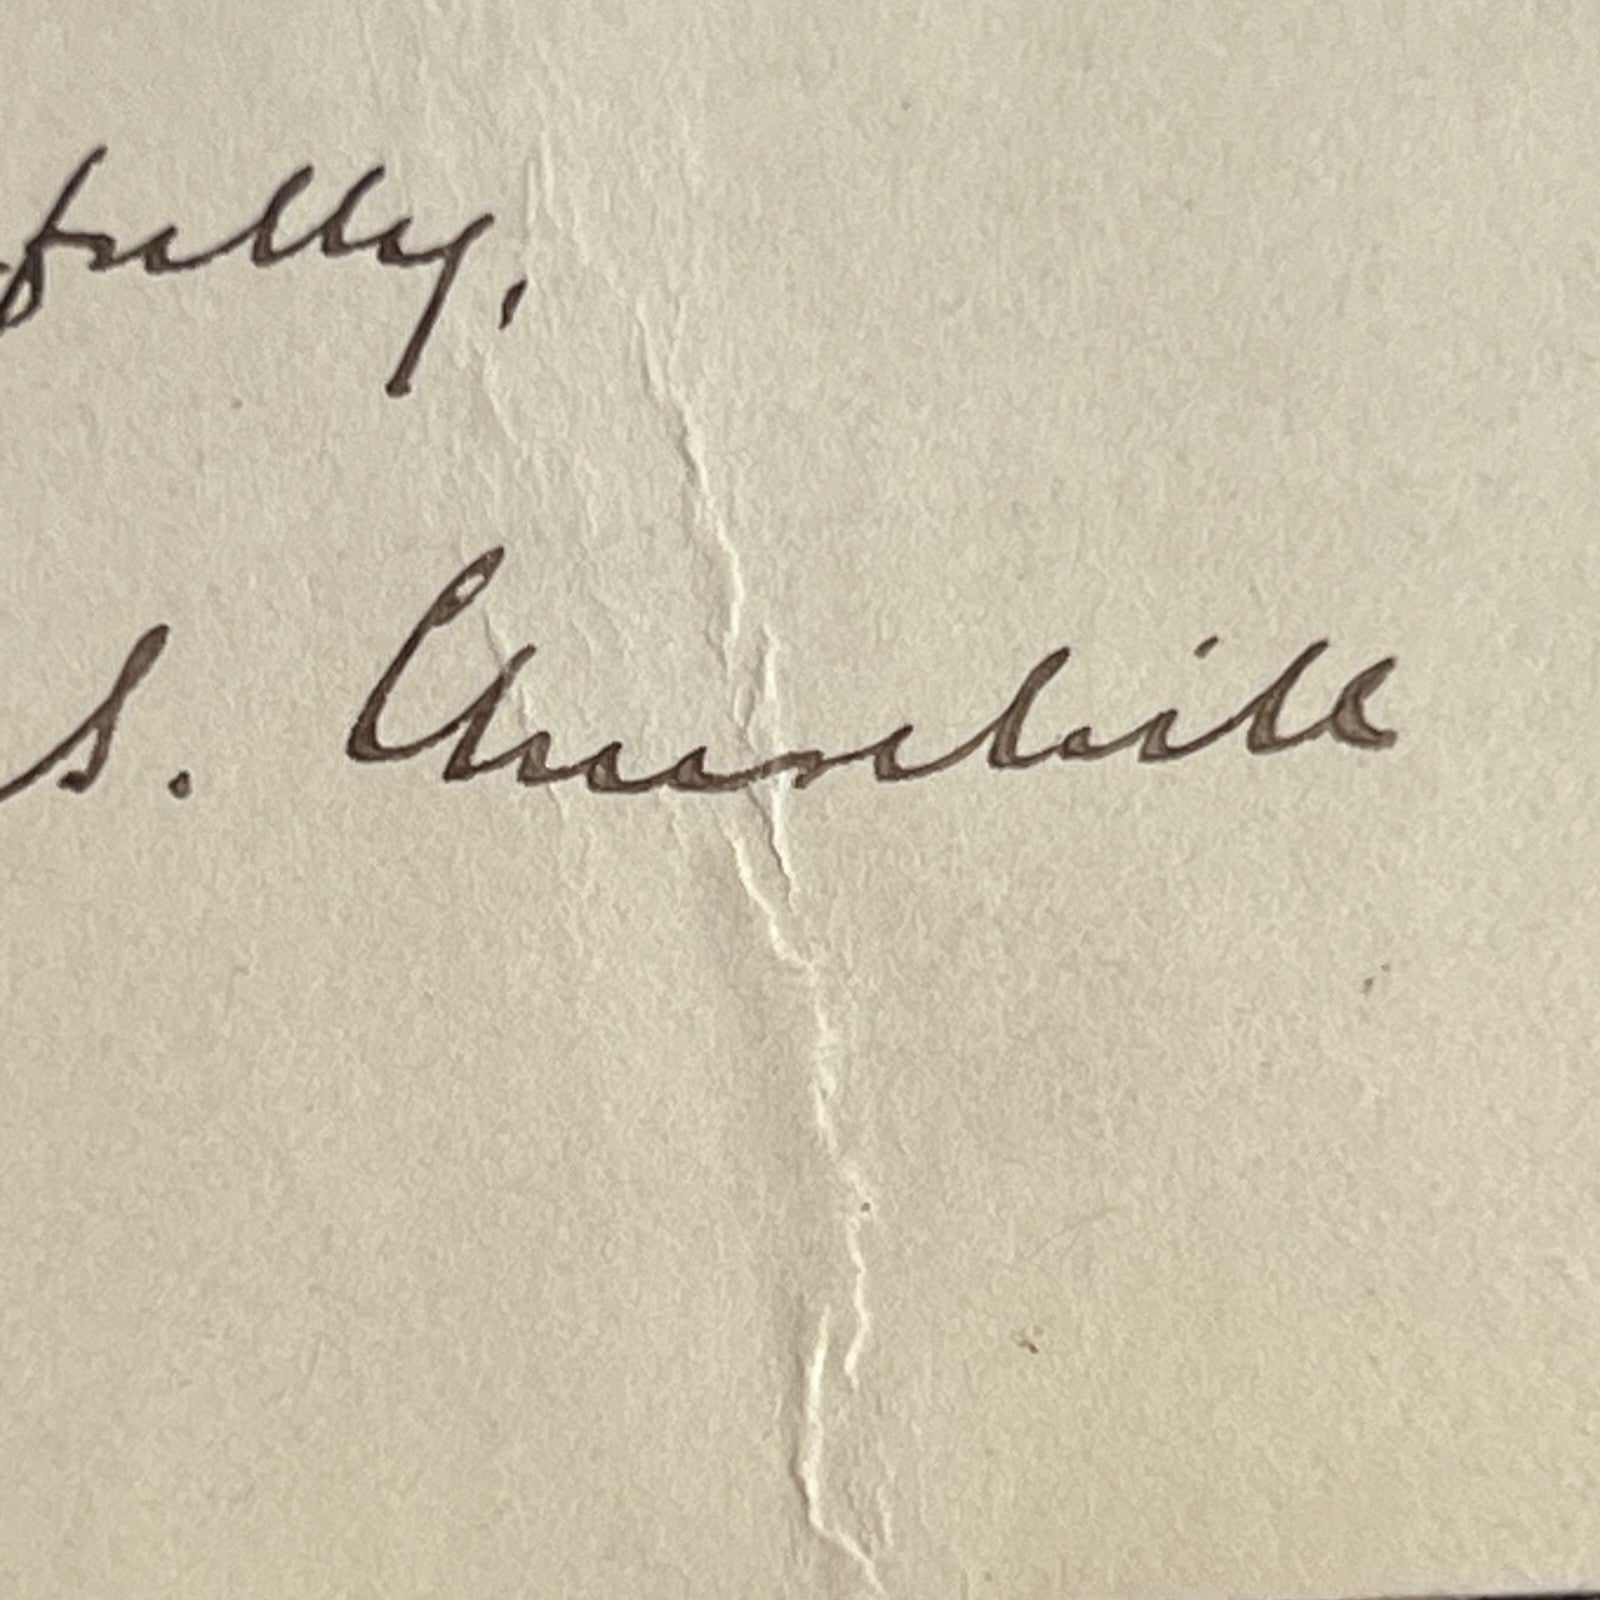 fully,
S. Churchill